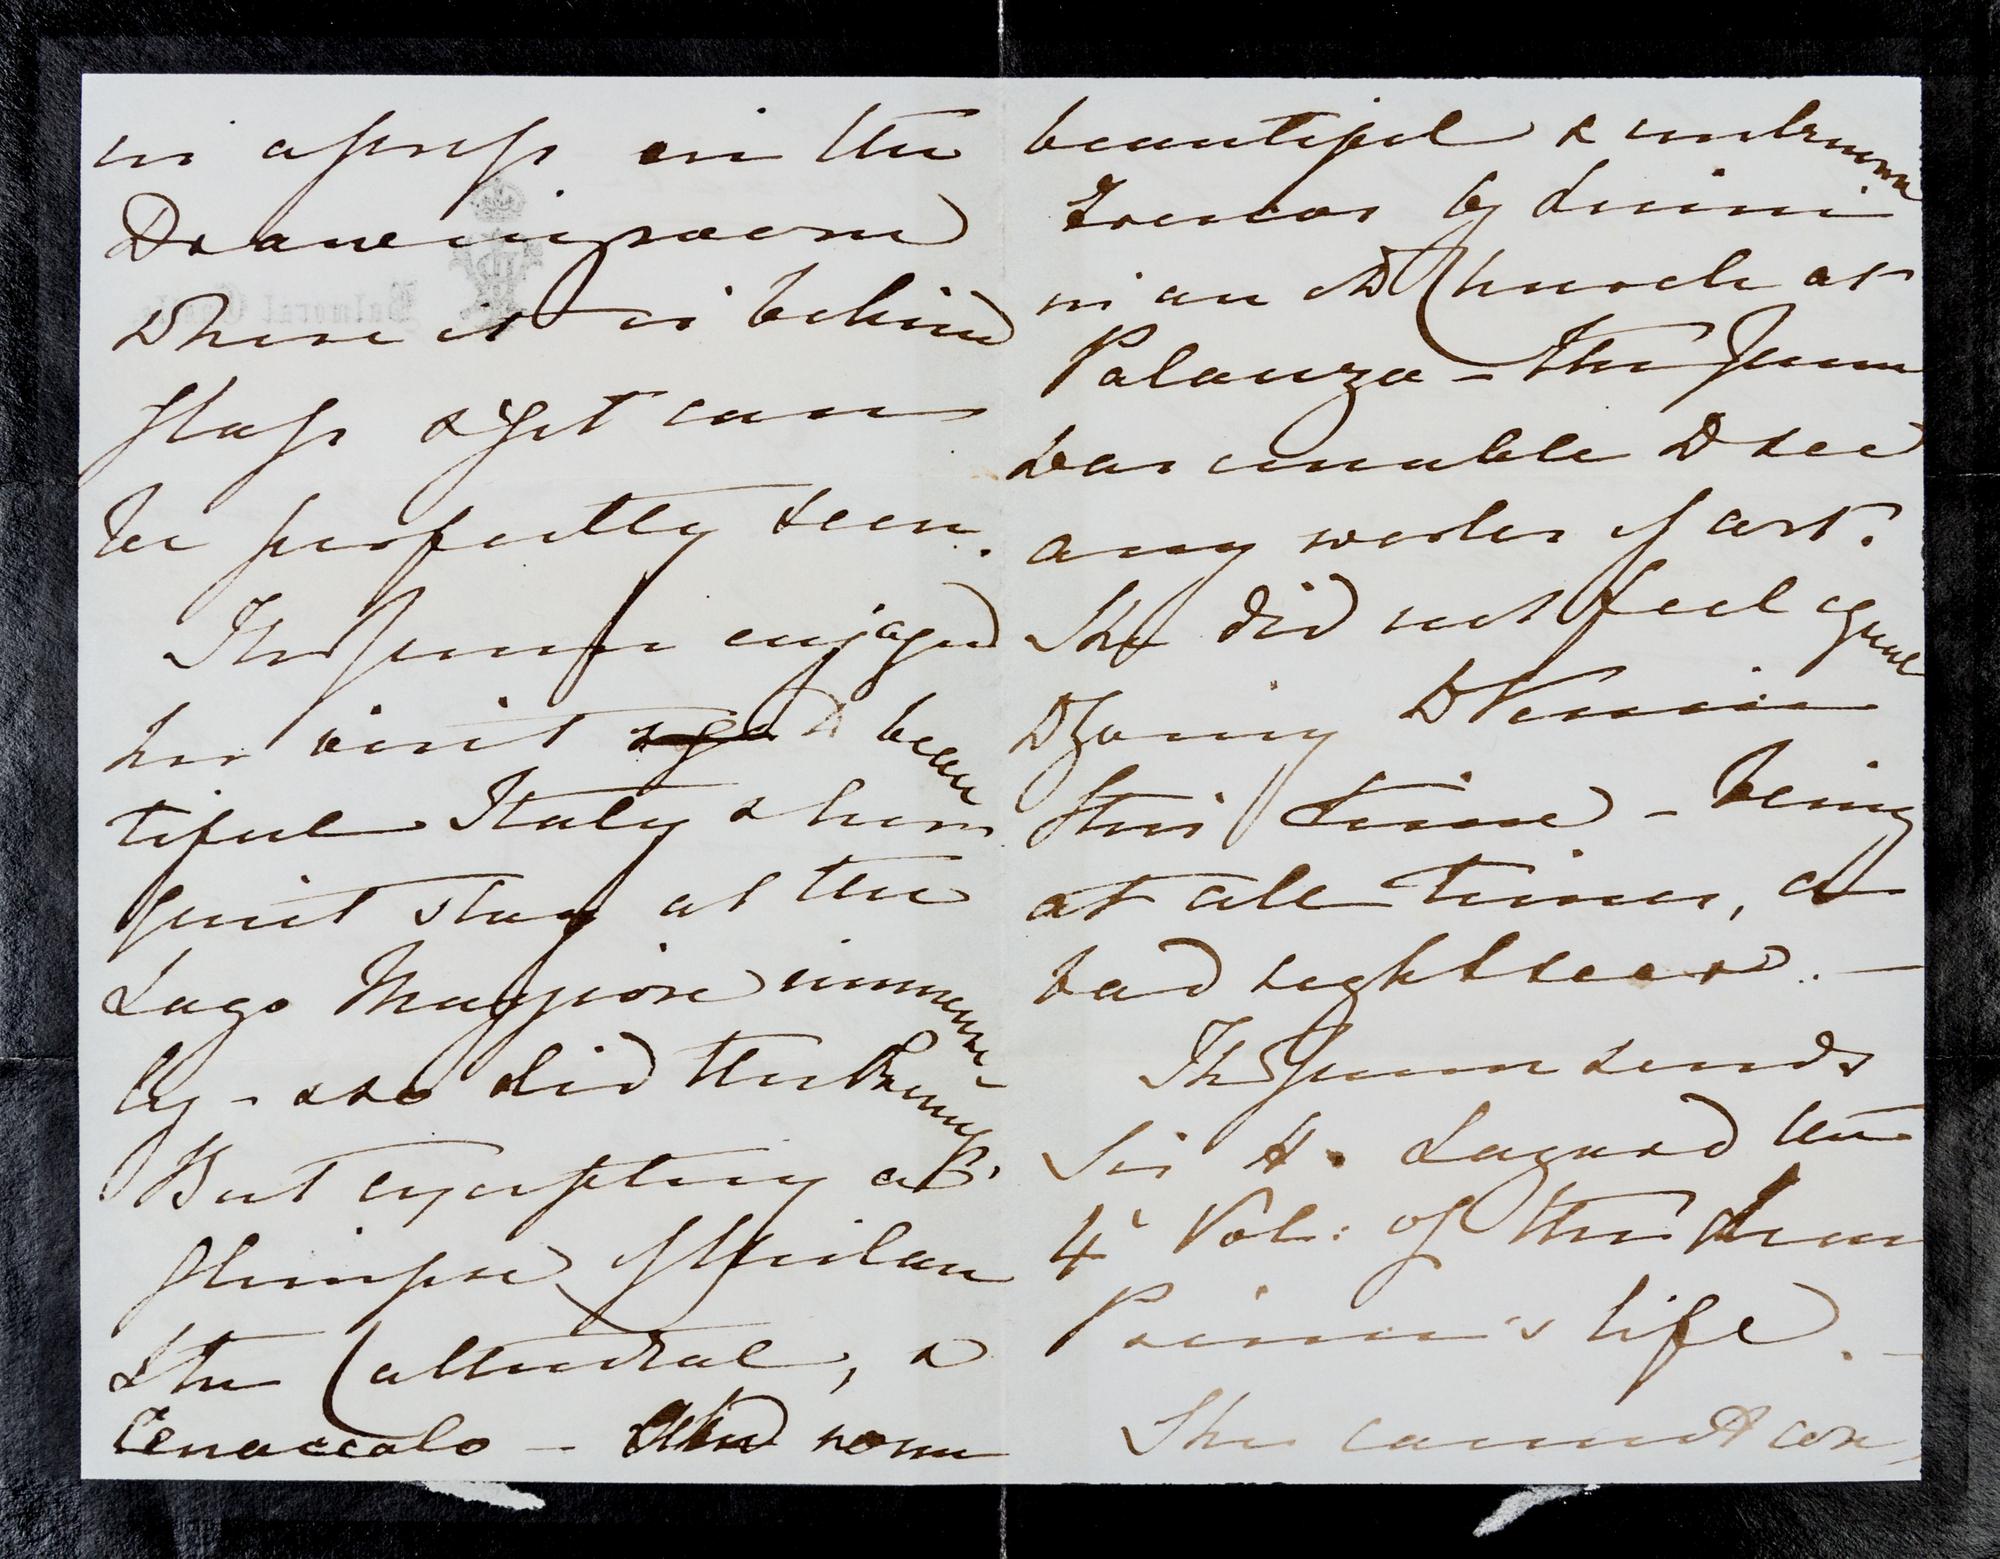 in a press in the
Drawingroom
where it is behind
glass & yet can
be perfectly seen.
The Queen enjoyed
her visit to beau
tiful Italy & her
quiet stay at the
Lago Maggiore immense-
ly – & so did the Princess B.
But excepting a
glimpse of Milan
& the Cathedral, &
Cenaccolo – & some
beautiful & unknown
Frescoes by Luini
in an old Church at
Palanza – The Queen
was unable to see
any works of art.
She did not feel equal
to going to Venice
this time – being
at all times, a
bad sightseer. –
The Queen sends
Sir H. Layard the
4th Vol: of the dear
Prince's life. –
She cannot con
Balmoral Castle.